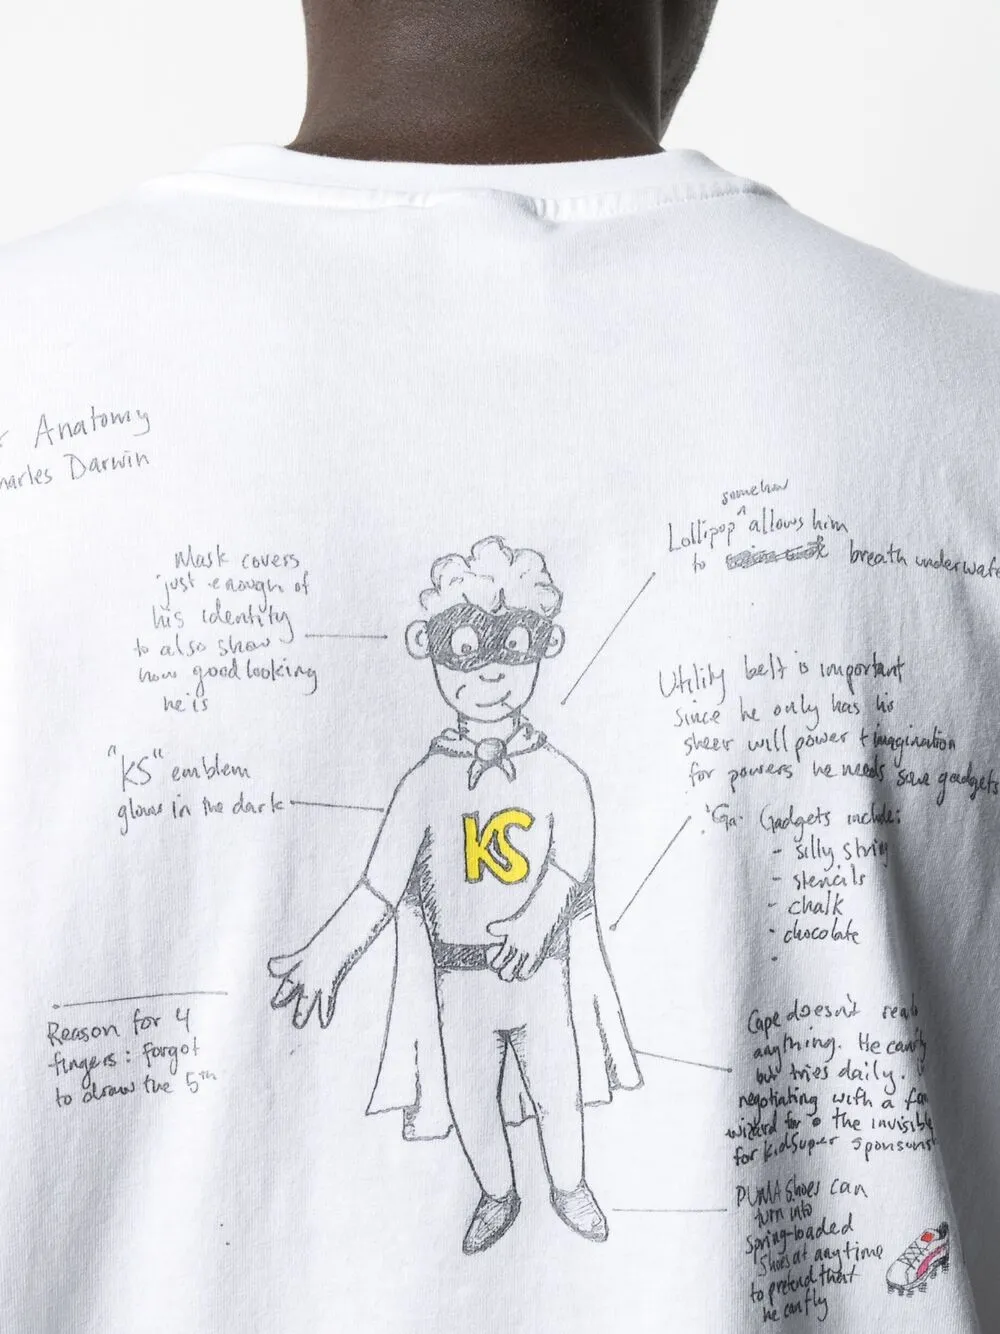 Anatomy
Charles Darwin
Mask covers
just enough of
his identity
to also show
how good looking
he is
"KS" emblem
glows in the dark
Reason for 4
fingers: forgot
to draw the 5th
somehow
Lollipop ^ allows him
to breath underwate
Utility belt is important
since he only has his
sheer will power + imagination
for powers he needs some gadgets
Gadgets include:
- silly string
- stencils
- chalk
- chocolate
-
Cape doesn't
anything. He can't fly
but tries daily.
negotiating with a
wizard for the invisible
for kidsuper
PUMA shoes can
turn into
spring-loaded
shoes at anytime
to pretend that
he can fly
KS